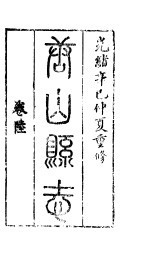 光緒辛巳仲夏重修
唐山縣志
卷陸